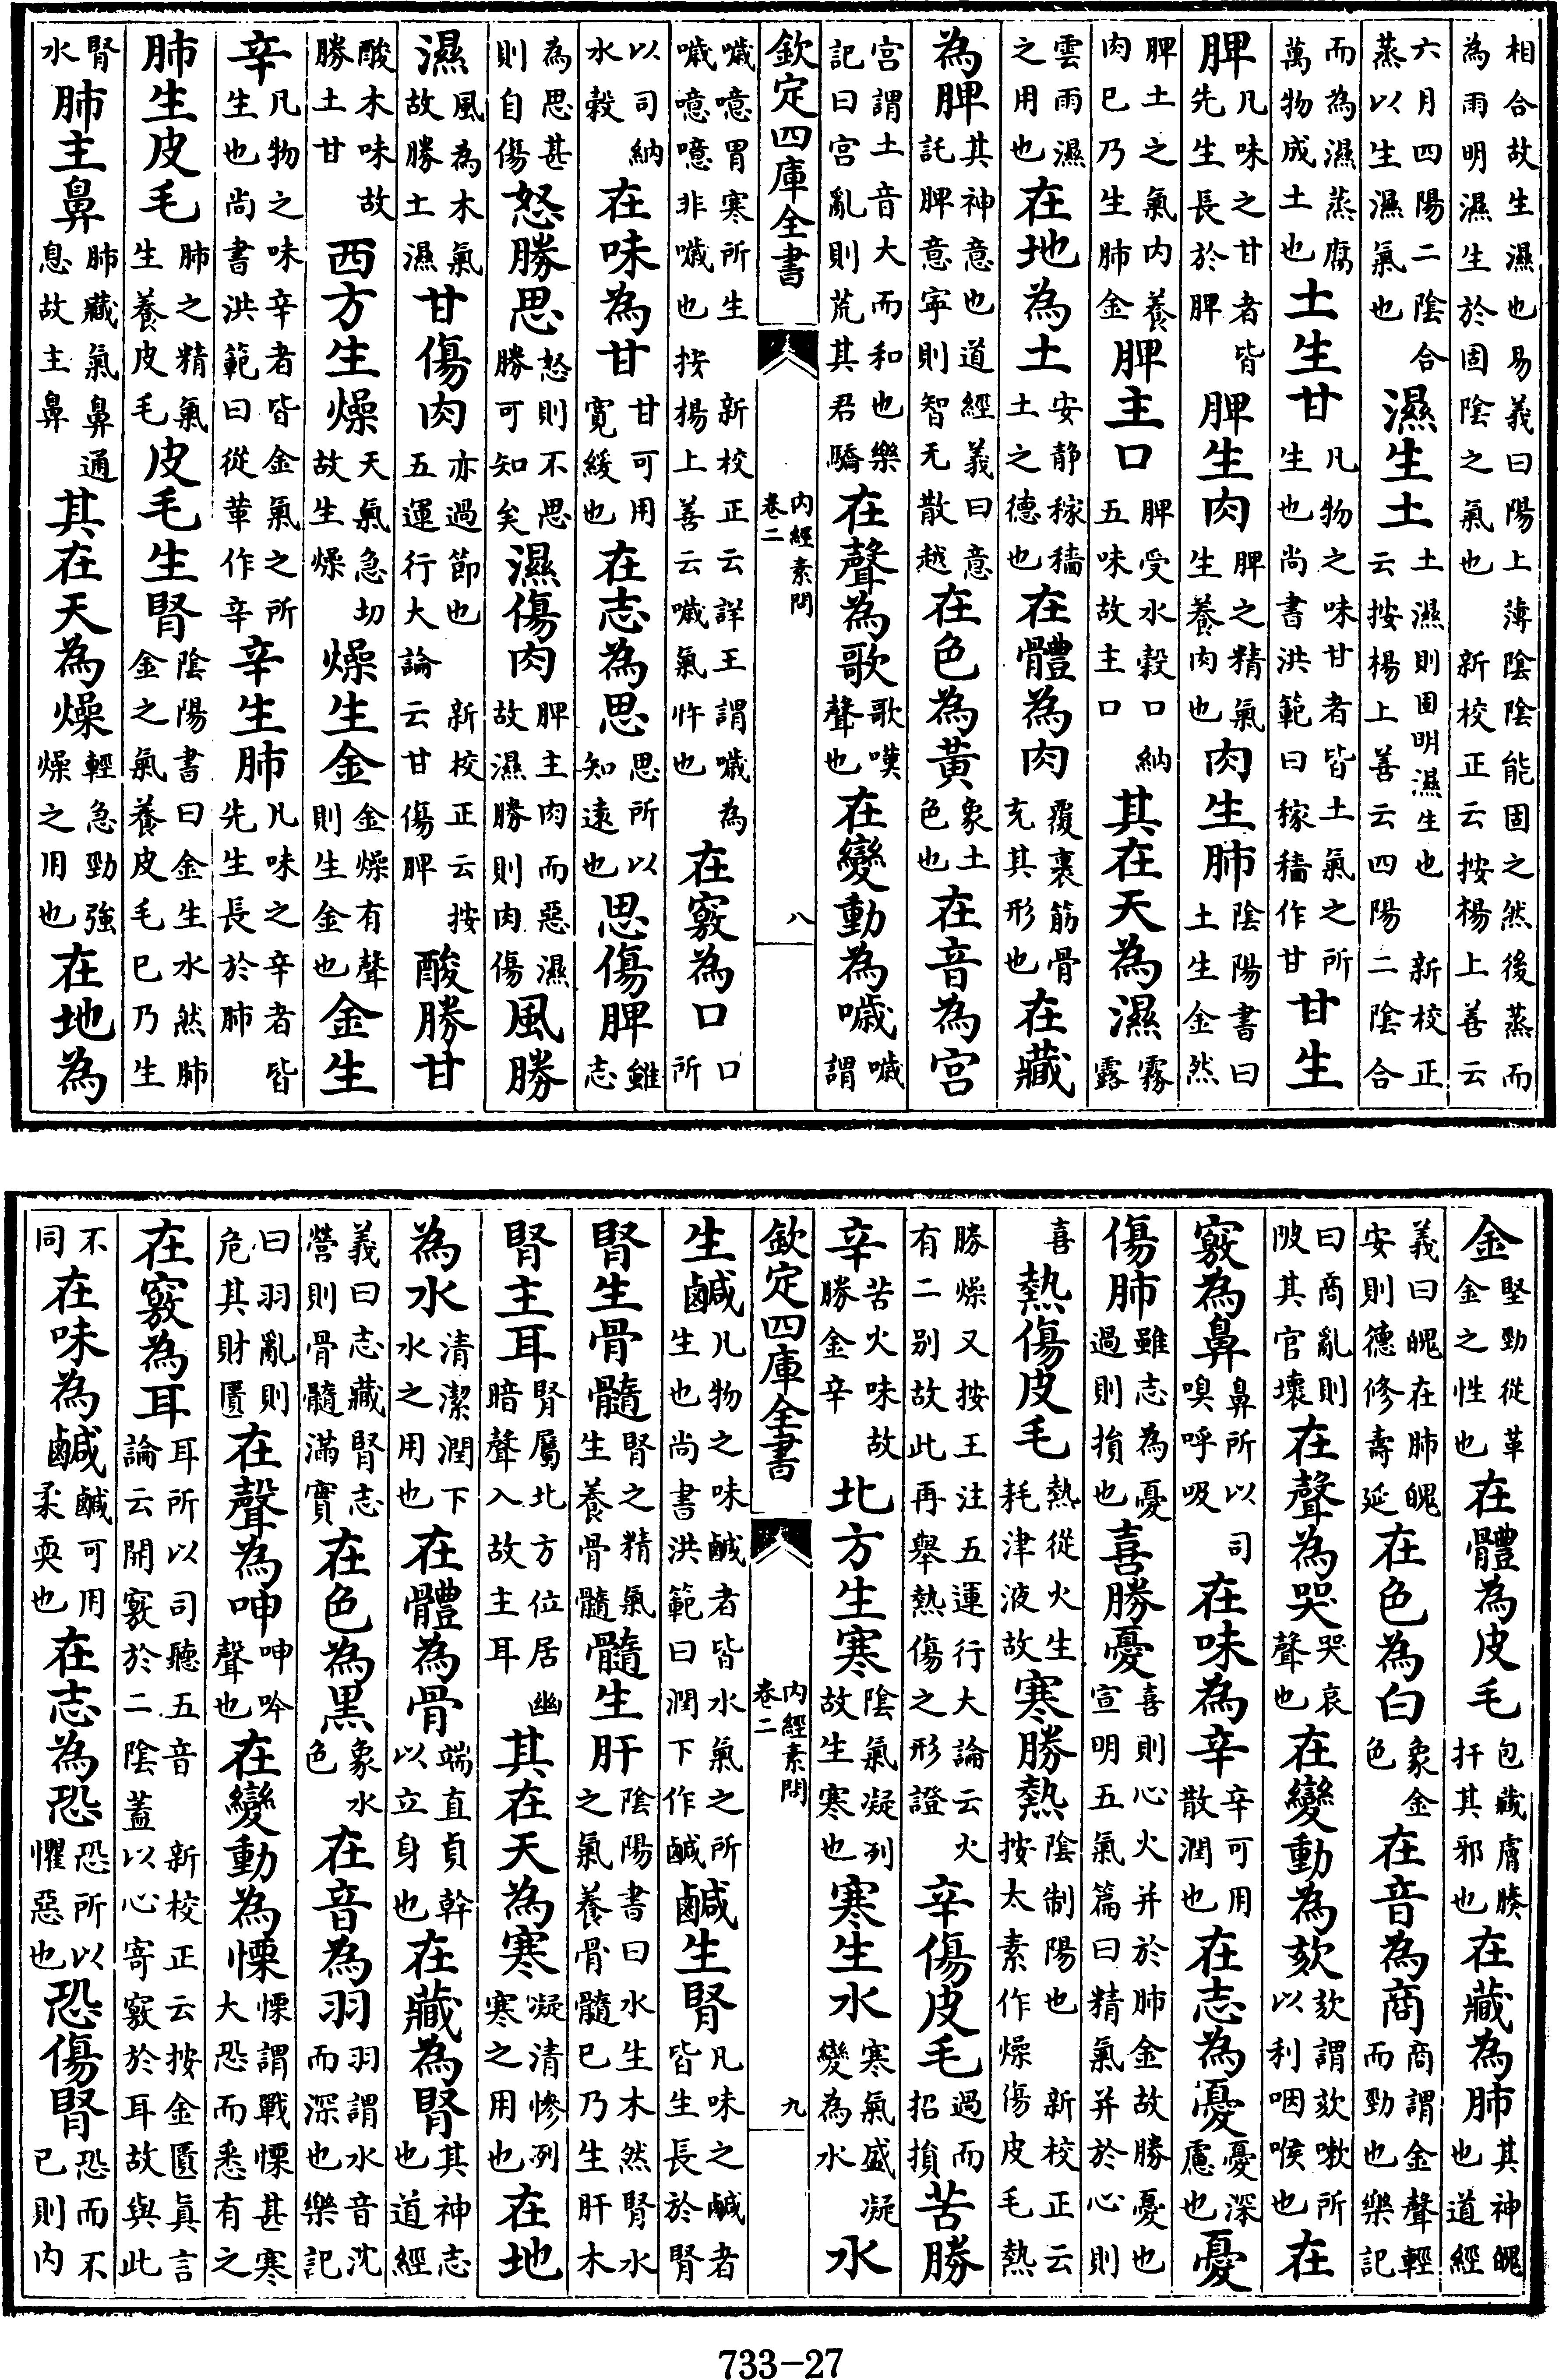 相合故生濕也易義曰陽上薄陰陰能固之然後蒸而為雨明濕生於固陰之氣也　新校正云按楊上善云
六月四陽二陰合蒸以生濕氣也濕生土土濕則固明濕生也　新校正云按楊上善云四陽二陰合
而為濕蒸腐萬物成土也土生甘凡物之味甘者皆土氣之所生也尚書洪範曰稼穡作甘甘生
脾凡味之甘者皆先生長於脾脾生肉脾之精氣生養肉也肉生肺陰陽書曰土生金然
脾土之氣內養肉已乃生肺金脾主口脾受水穀口納五味故主口其在天為濕霧露
雲雨濕之用也在地為土安靜稼穡土之德也在體為肉覆裹筋骨充其形也在藏
為脾其神意也道經義曰意託脾意寧則智无散越在色為黃象土色也在音為宮
宮謂土音大而和也樂記曰宮亂則荒其君驕在聲為歌歌嘆聲也在變動為噦噦謂
欽定四庫全書　內經素問　卷二　八
噦噫胃寒所生　新校正云詳王謂噦為噦噫噫非噦也按楊上善云噦氣忤也在竅為口口所
以司納水穀在味為甘甘可用寬緩也在志為思思所以知遠也思傷脾雖志
為思甚則自傷怒勝思怒則不思勝可知矣濕傷肉脾主肉而惡濕故濕勝則肉傷風勝
濕風為木氣故勝土濕甘傷肉亦過節也　新校正云按五運行大論云甘傷脾酸勝甘
酸木味故勝土甘西方生燥天氣急切故生燥燥生金金燥有聲則生金也金生
辛凡物之味辛者皆金氣之所生也尚書洪範曰從革作辛辛生肺凡味之辛者皆先生長於肺
肺生皮毛肺之精氣生養皮毛皮毛生腎陰陽書曰金生水然肺金之氣養皮毛已乃生
腎水肺主鼻肺藏氣鼻通息故主鼻其在天為燥輕急勁強燥之用也在地為
金堅勁從革金之性也在體為皮毛包藏膚腠扞其邪也在藏為肺其神魄也道經
義曰魄在肺魄安則德修壽延在色為白象金色在音為商商謂金聲輕而勁也樂記
曰商亂則陂其官壞在聲為哭哭哀聲也在變動為欬欬謂欬嗽所以利咽喉也在
竅為鼻鼻所以司嗅呼吸在味為辛辛可用散潤也在志為憂憂深慮也憂
傷肺雖志為憂過則損也喜勝憂喜則心火并於肺金故勝憂也宣明五氣篇曰精氣并於心則
喜熱傷皮毛熱從火生耗津液故寒勝熱陰制陽也　新校正云按太素作燥傷皮毛熱
勝燥又按王注五運行大論云火有二別故此再舉熱傷之形證辛傷皮毛過而招損苦勝
辛苦火味故勝金辛北方生寒陰氣凝列故生寒也寒生水寒氣盛凝變為水水
欽定四庫全書　內經素問　卷二　九
生鹹凡物之味鹹者皆水氣之所生也尚書洪範曰潤下作鹹鹹生腎凡味之鹹者皆生長於腎
腎生骨髓腎之精氣生養骨髓髓生肝陰陽書曰水生木然腎水之氣養骨髓已乃生肝木
腎主耳腎屬北方位居幽暗聲入故主耳其在天為寒凝清慘列寒之用也在地
為水清潔潤下水之用也在體為骨端直貞幹以立身也在藏為腎其神志也道經
義曰志藏腎志營則骨髓滿實在色為黑象水色在音為羽羽謂水音沈而深也樂記
曰羽亂則危其財匱在聲為呻呻吟聲也在變動為慄慄謂戰慄甚寒大恐而悉有之
在竅為耳耳所以司聽五音　新校正云按金匱真言論云開竅於二陰蓋以心寄竅於耳故與此
不同在味為鹹鹹可用柔耎也在志為恐恐所以懼惡也恐傷腎恐而不已則內
733-27